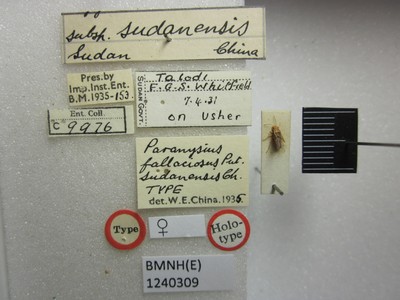 subsp. sudanensis
Sudan China
Pres. by
Imp. Inst. Ent.
B.M. 1935-153
Ent. Coll.
C 9976
SUDAN GOVT.
Talodi
F.G.S. Whitfield
7.4.31
on Usher
Paranysius
fallaciosus Put.
sudanensis Ch.
TYPE
det. W.E. China. 1935.
Type
♀
Holo-
type
BMNH(E)
1240309